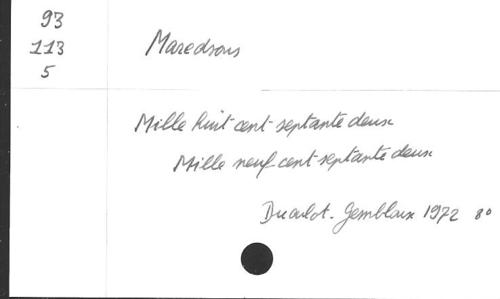 93
113
5
Maredsous
Mille huit cent septante deux
Mille neuf cent septante deux
Duculot. Gembloux 1972 8°